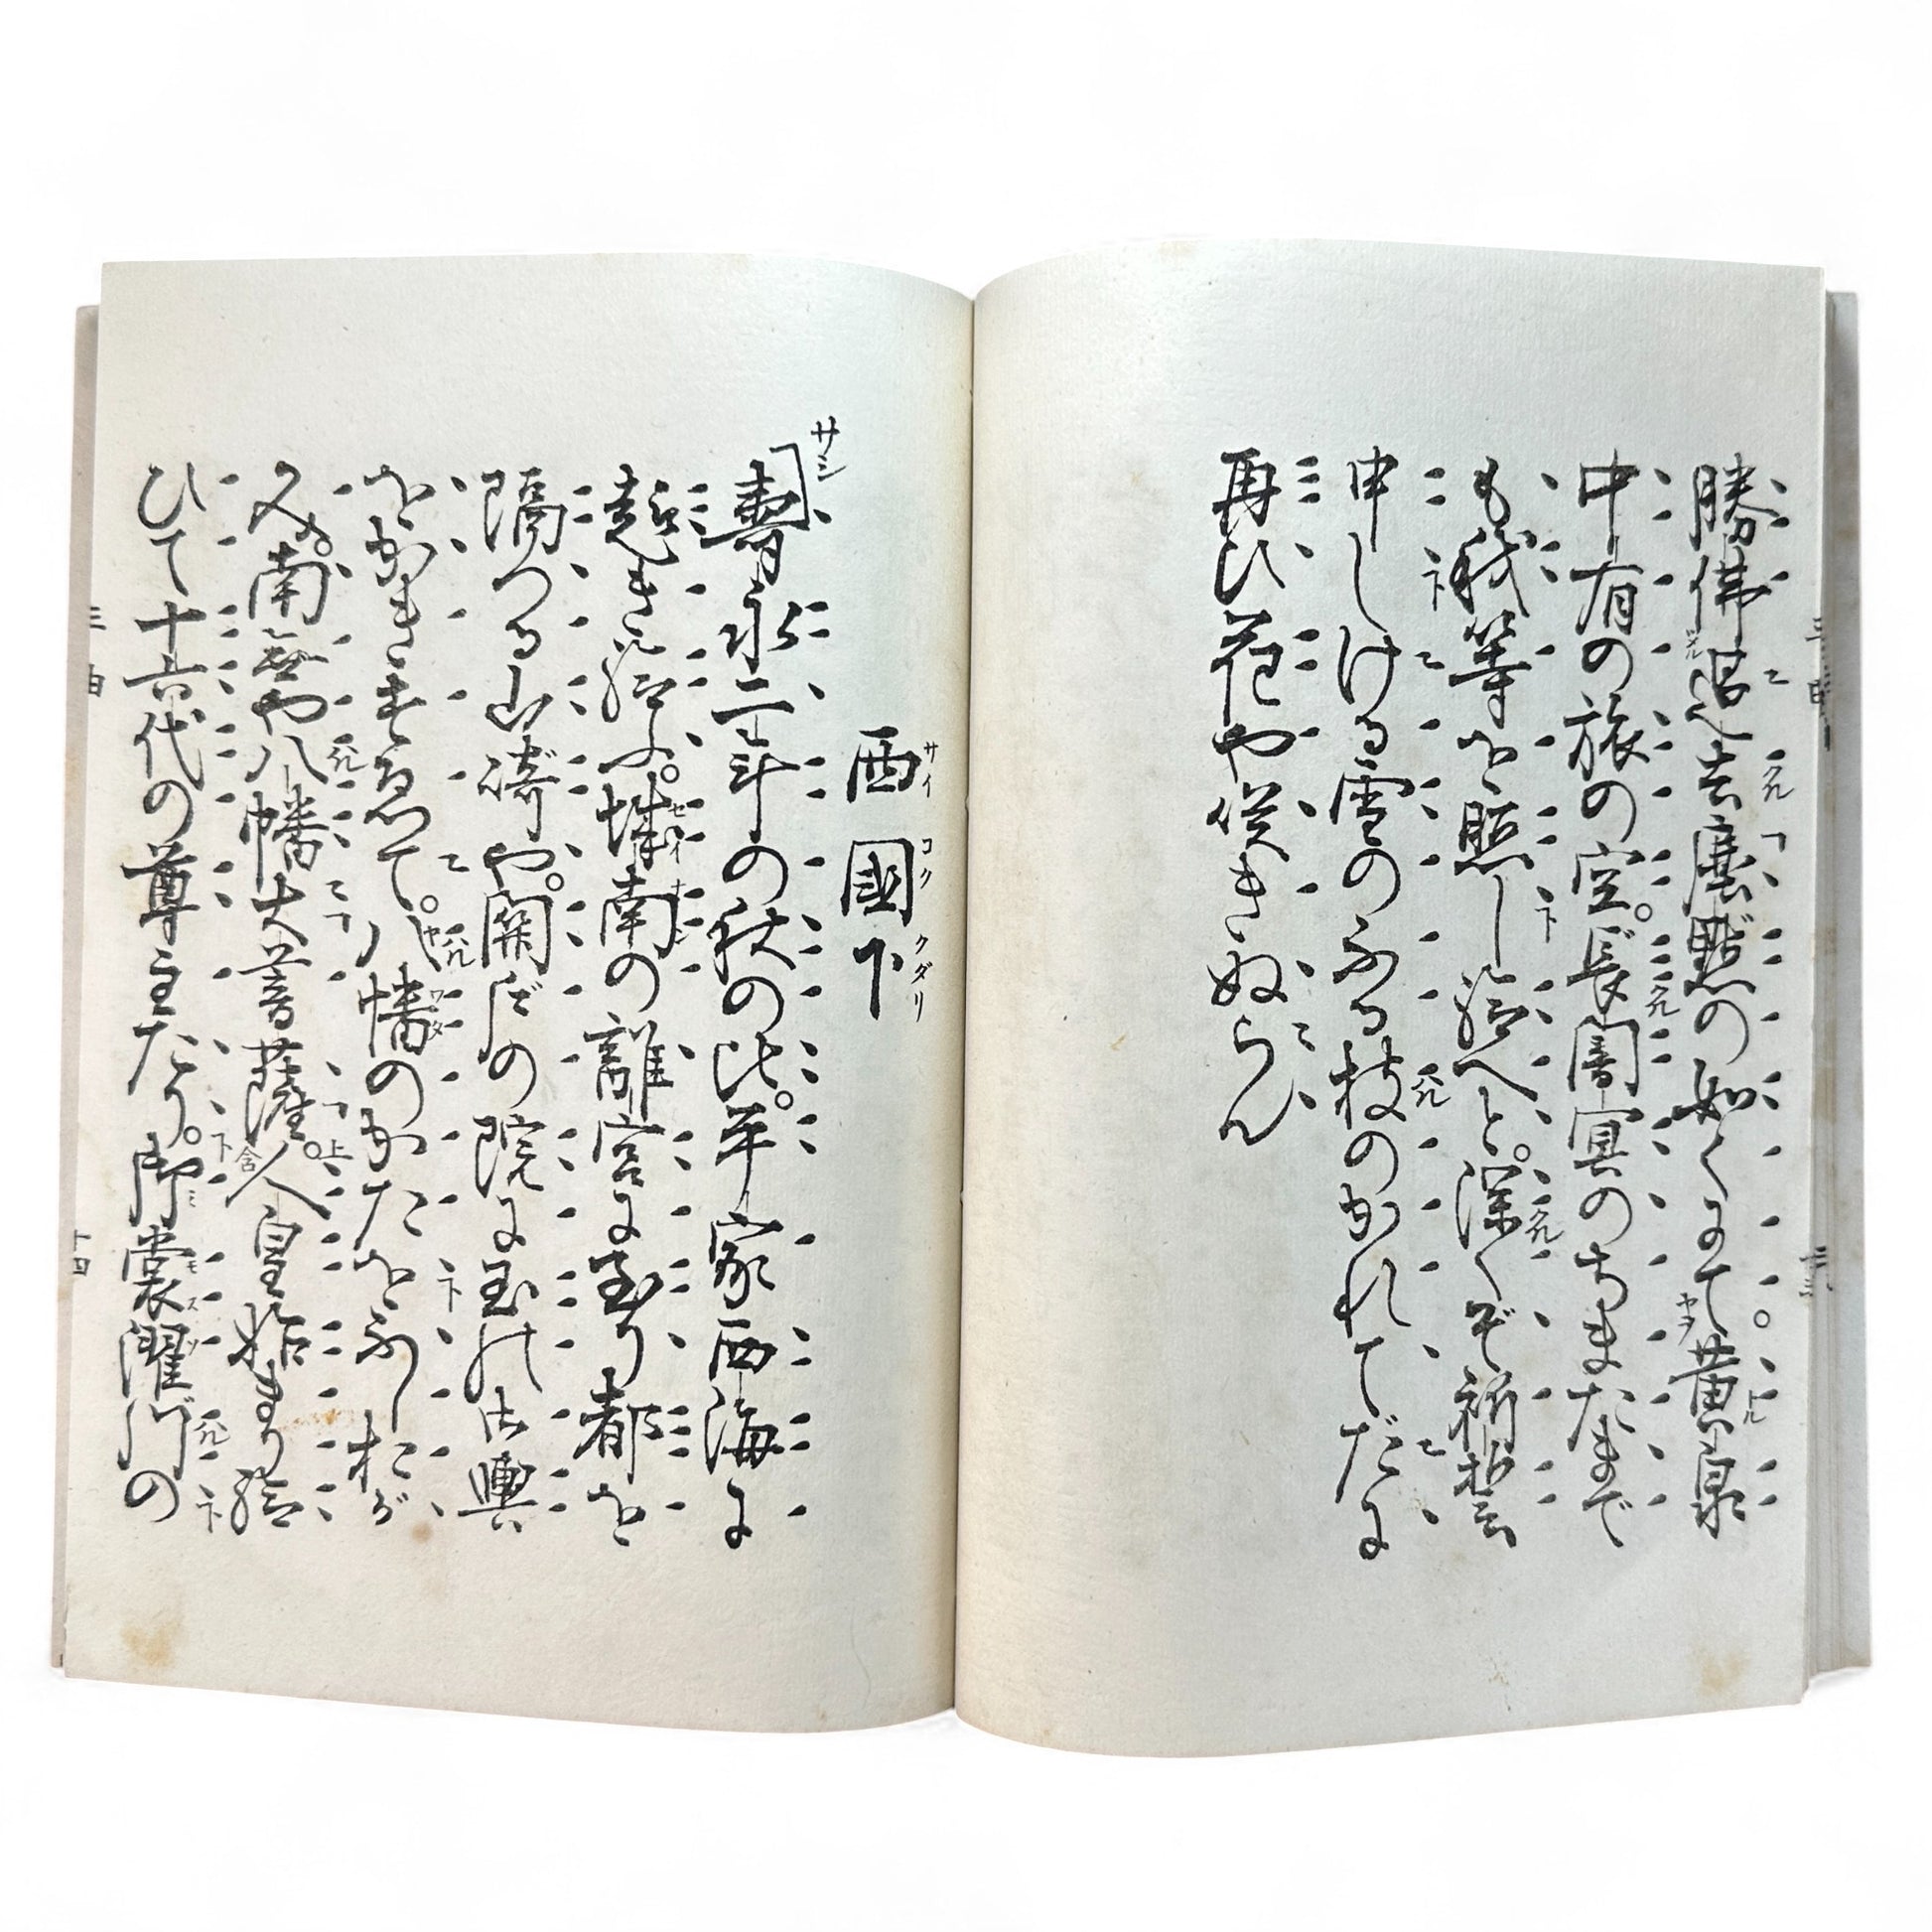 勝佛世へ去塵點の如くにて。黄泉
中有の旅の空。長闇冥のちまたまで
も我等を照し給へと。深くぞ祈誓
申しける雪のふる枝のかれてだに
再び花や咲きぬらん
西國下
サイコククダリ
サシ
壽永二年の秋の比。平家西海に
趣き給ふ。城南の離宮に至り都を
隔つる山崎や。関戸の院に玉の御輿
をかきすゑて。八幡のかたをふしおが
み。南無や八幡大菩薩。人皇始まり給
ひて十六代の尊主たり。御裳濯川の